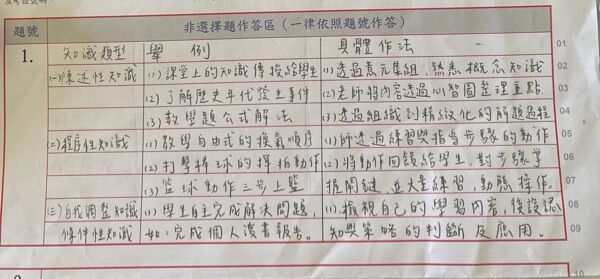 題號 非選擇題作答區(一律依照題號作答)
1. 知識類型 舉 例 具體作法 01
(一)陳述性知識 (1)課堂上的知識傳授給學生 (1)透過意元集組,熟悉概念知識 02
(2)了解歷史年代發生事件 (2)老師將內容透過心智圖整理重點 03
(3)數學題公式解法 (3)透過組織到精緻化的解題過程 04
(二)程序性知識 (1)教學自由式的換氣順序 (1)師透過練習與指導步驟的動作 05
(2)打擊棒球的揮拍動作 (2)將動作回饋給學生,對步驟掌 06
(3)籃球動作三步上籃 握關鍵,並大量練習,動態操作。 07
(三)自我調整知識 (1)學生自主完成解決問題, (1)檢視自己的學習內容,後設認 08
條件性知識 如:完成個人讀書報告。 知與策略的判斷及應用。 09
10